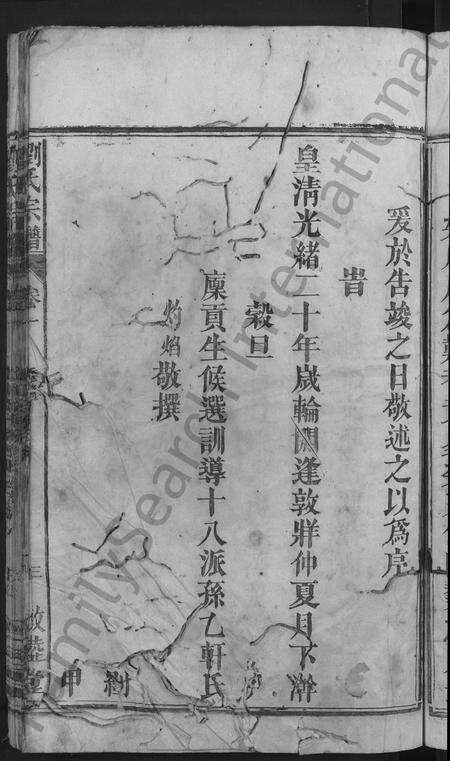 爰於告竣之日敬述之以為序
旹
皇清光緒二十年歲輪閼逢敦牂仲夏月下澣
穀旦
廩貢生候選訓導十八派孫乙軒氏
灼焰敬撰
樹甲
劉氏宗譜 卷一
FamilySearch International